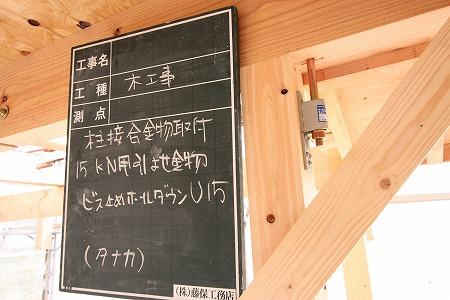 工事名
工種 木工事
測点
柱接合金物取付
15 KN用引よせ金物
ビス止めホールダウンU15
(タナカ)
(株)藤保工務店